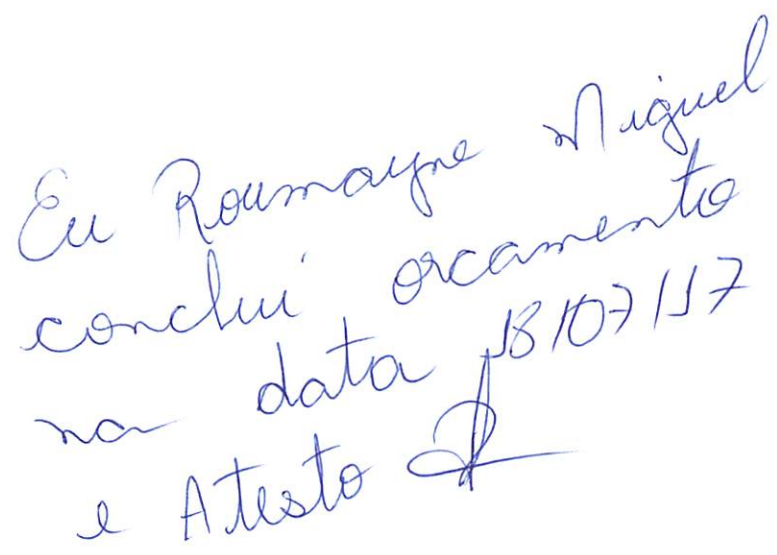 Eu Roumayne Miguel
conclui orcamento
na data 18/07/17
e Atesto